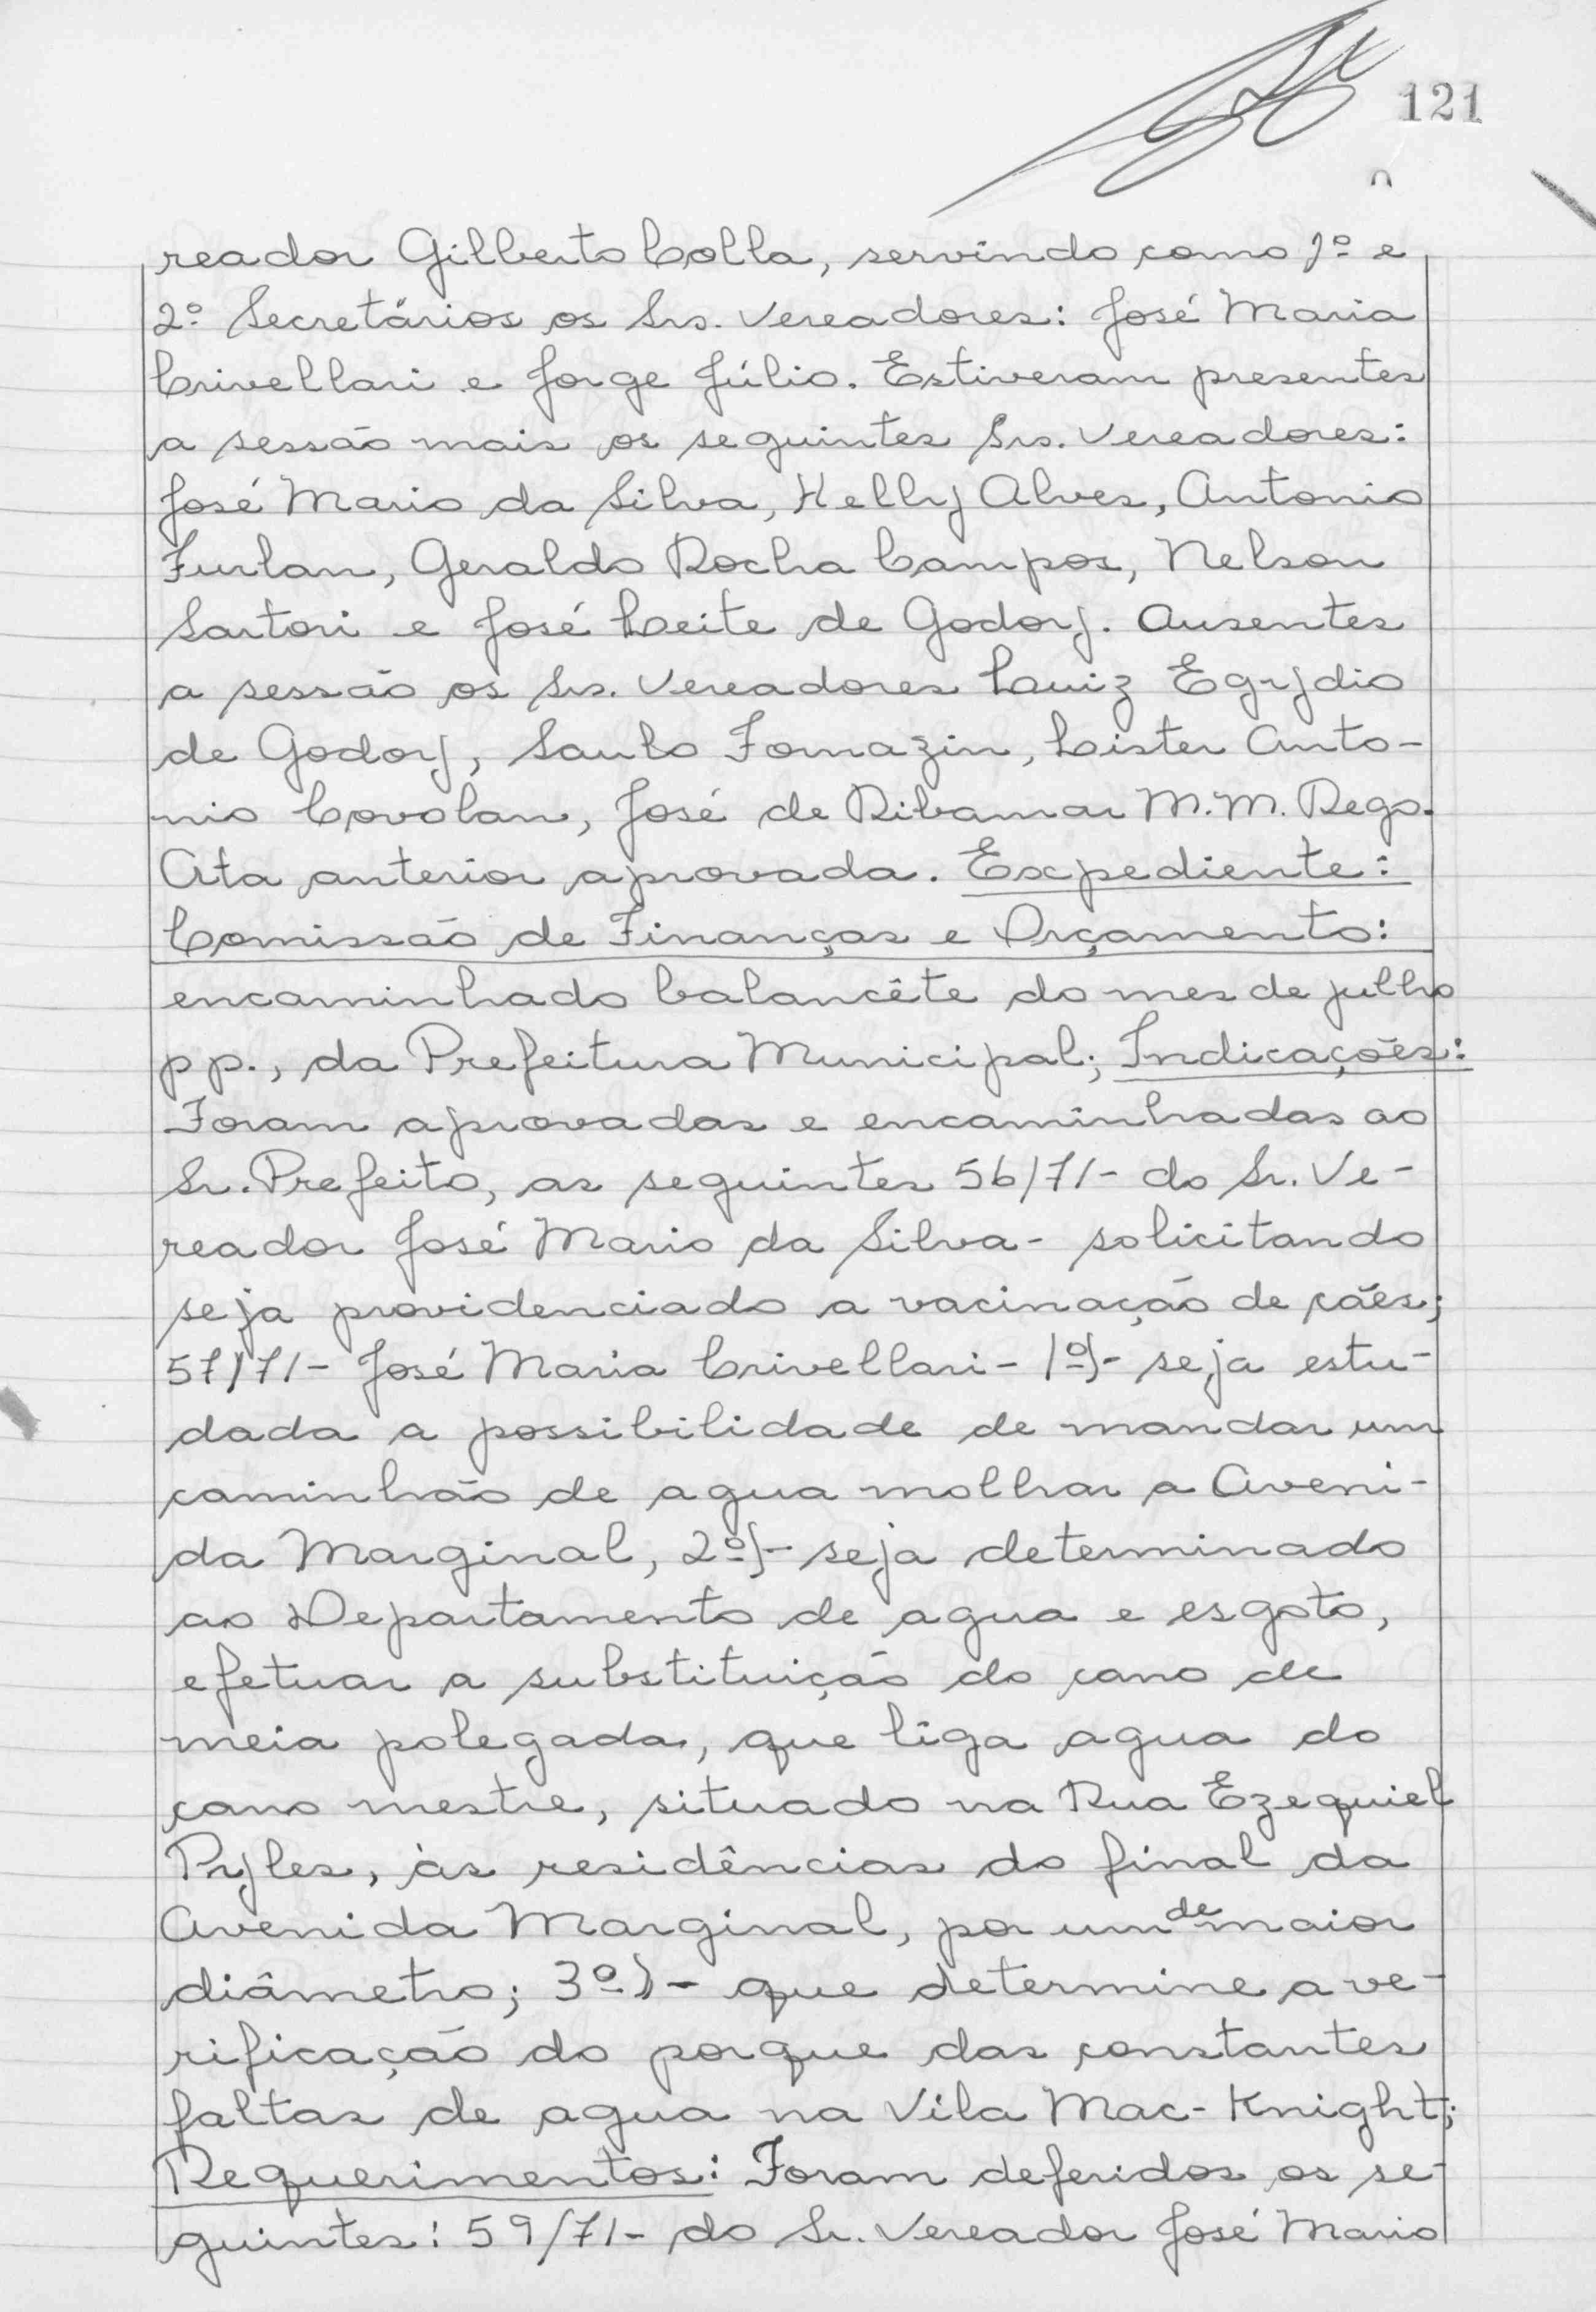 121
reador Gilberto Colla, servindo como 1º e
2º Secretários os Srs. Vereadores: José Maria
Crivellari e Jorge Júlio. Estiveram presentes
a sessão mais os seguintes Srs. Vereadores:
José Mario da Silva, Helly Alves, Antonio
Furlan, Geraldo Rocha Campos, Nelson
Sartori e José Leite de Godoy. Ausentes
a sessão os Srs. Vereadores Luiz Egydio
de Godoy, Saulo Fornazin, Lister Anto-
nio Covolan, José de Ribamar M. M. Rego.
Ata anterior aprovada. Expediente:
Comissão de Finanças e Orçamento:
encaminhado balancête do mes de julho
pp., da Prefeitura Municipal; Indicações:
Foram aprovadas e encaminhadas ao
Sr. Prefeito, as seguintes 56/71- do Sr. Ve-
reador José Mario da Silva- solicitando
seja providenciado a vacinação de cães;
57/71- José Maria Crivellari- 1º)- seja estu-
dada a possibilidade de mandar um
caminhão de agua molhar a Aveni-
da Marginal, 2º)- seja determinado
ao Departamento de agua e esgoto,
efetuar a substituição do cano de
meia polegada, que liga agua do
cano mestre, situado na Rua Ezequiel
Pyles, às residências do final da
Avenida Marginal, por um de maior
diâmetro; 3º)- que determine a ve-
rificação do porque das constantes
faltas de agua na Vila Mac-Knight;
Requerimentos: Foram deferidos os se-
guintes: 59/71- do Sr. Vereador José Mario